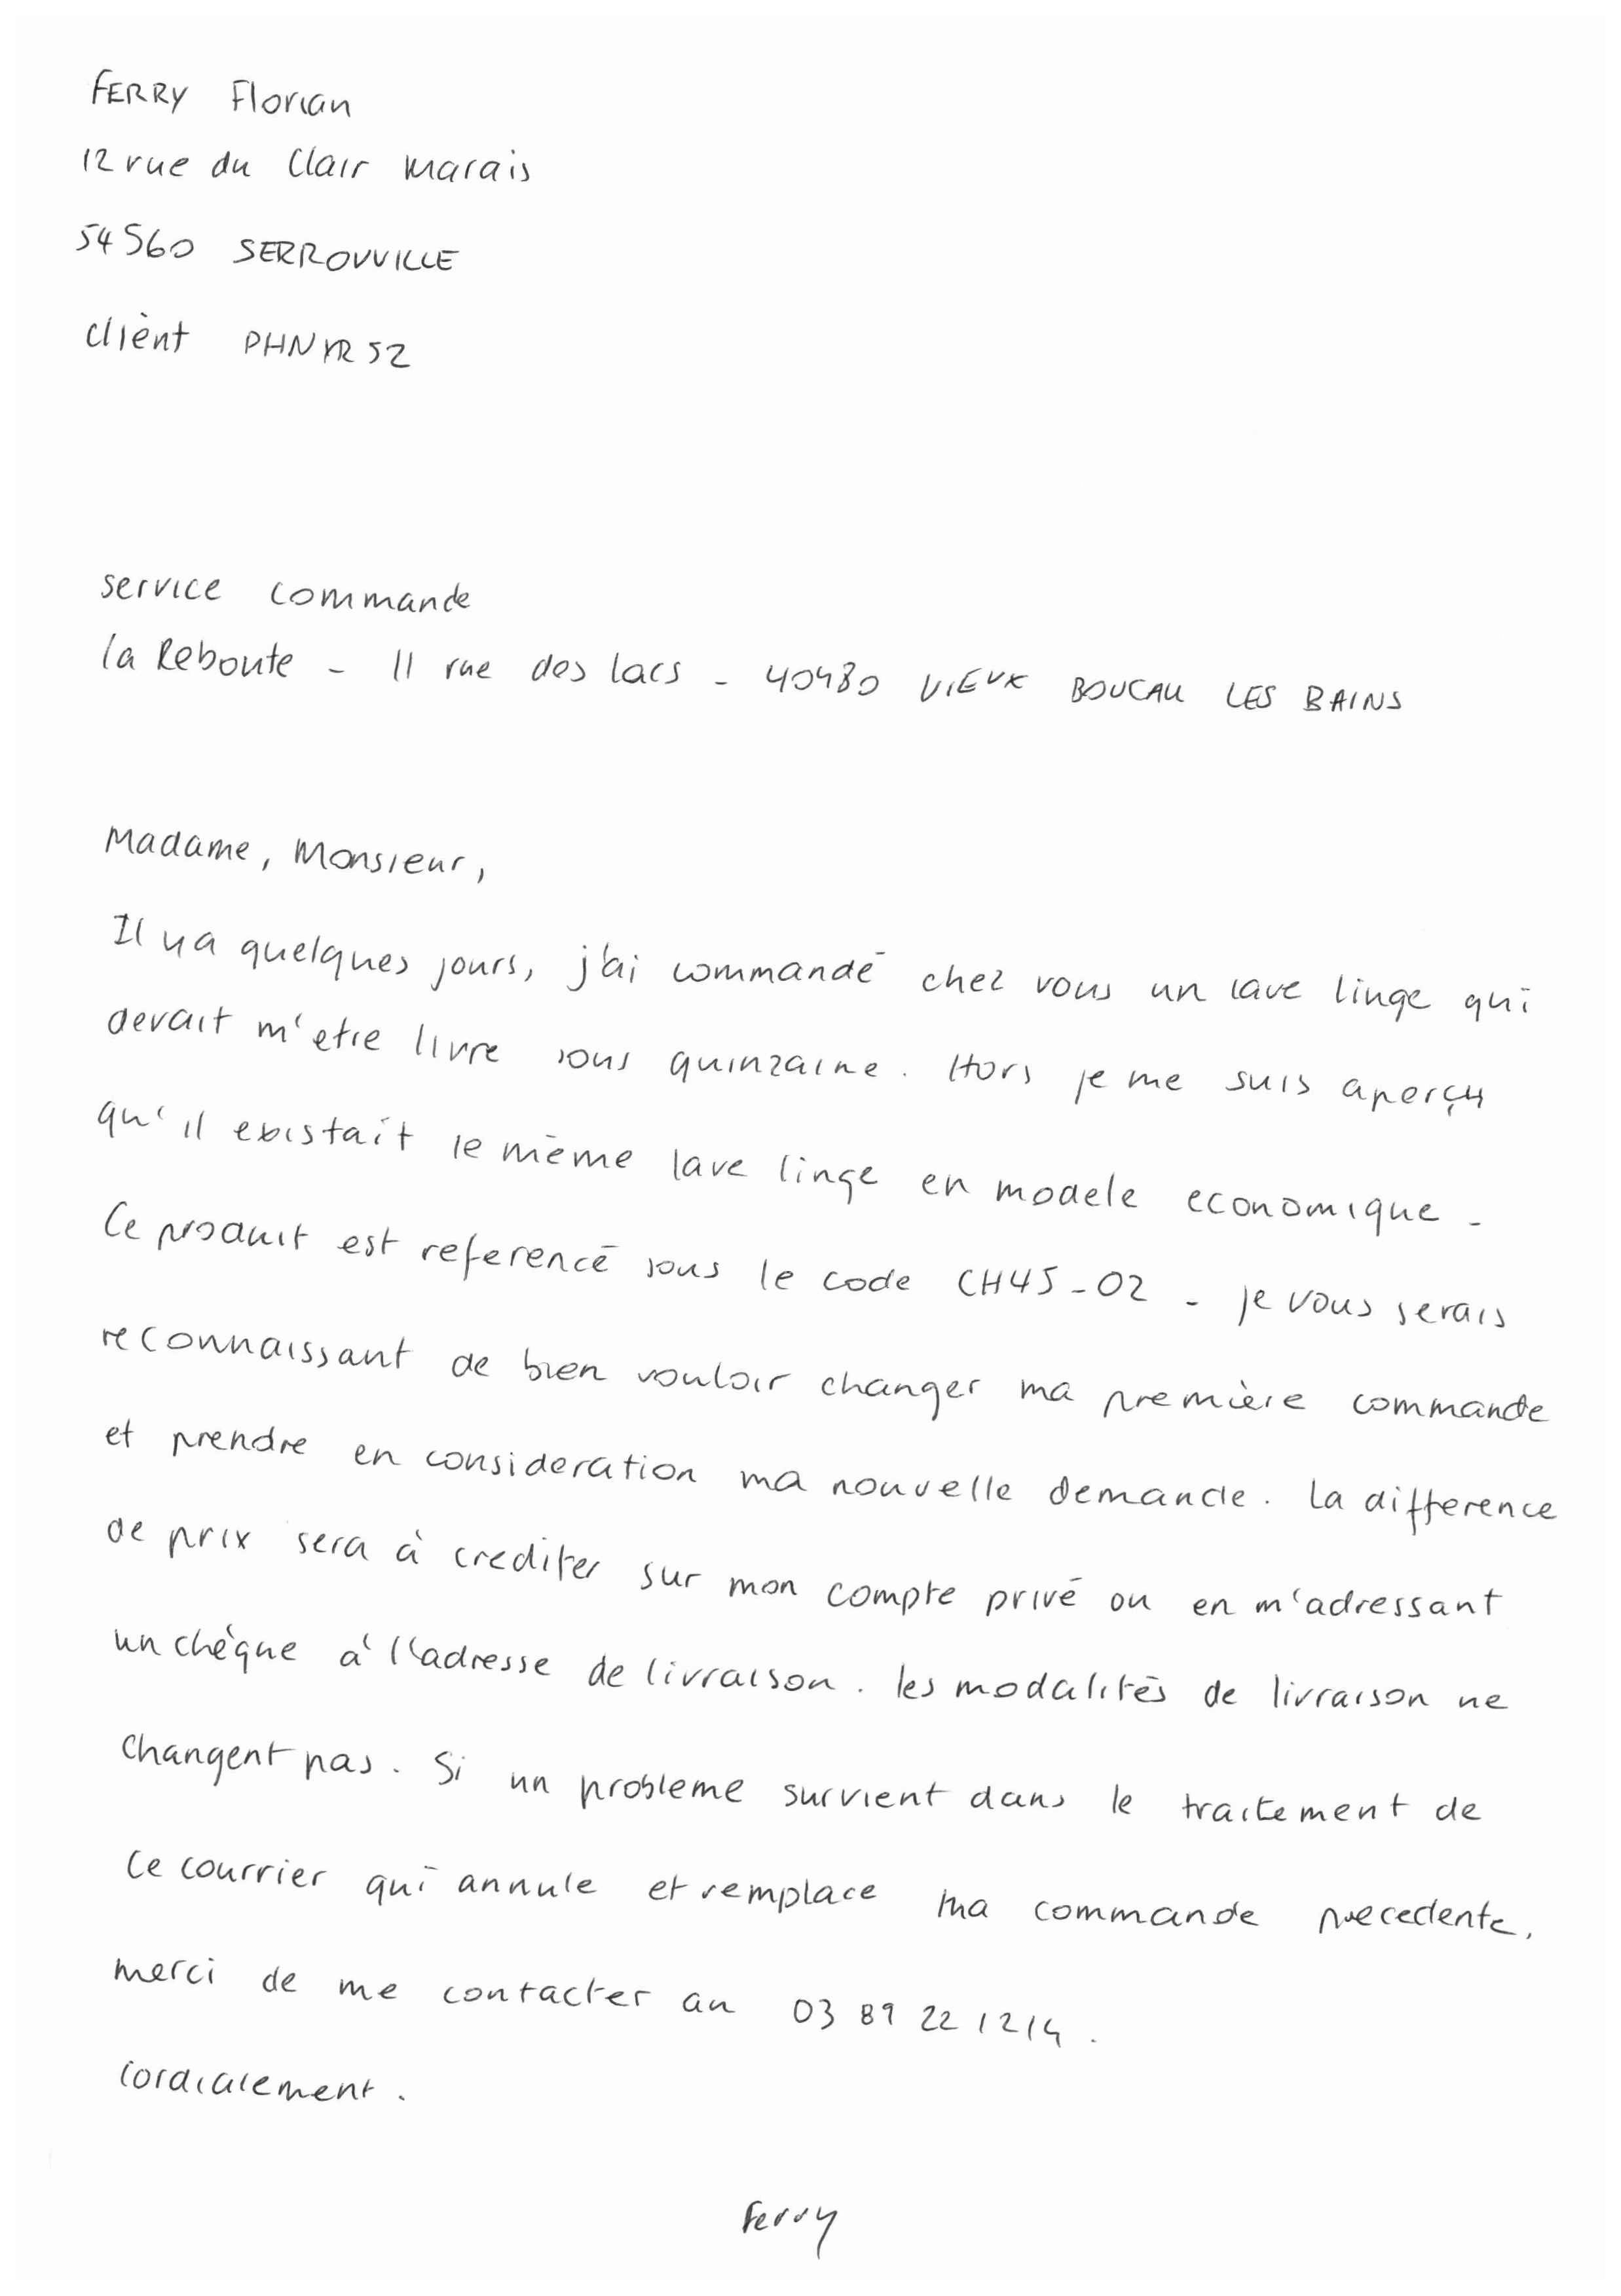 FERRY Florian
12 rue du Clair Marais
54560 SERROUVILLE
client PHNYR52
service commande
la Reboute - 11 rue des lacs - 40480 VIEUX BOUCAU LES BAINS
Madame, Monsieur,
Il y a quelques jours, j'ai commandé chez vous un lave linge qui
devait m'etre livre sous quinzaine. Hors je me suis aperçu
qu'il existait le même lave linge en modele economique -
Ce produit est referencé sous le code CH45-02 - je vous serais
reconnaissant de bien vouloir changer ma première commande
et prendre en consideration ma nouvelle demande. la difference
de prix sera à crediter sur mon compte privé ou en m'adressant
un chèque à l'adresse de livraison. les modalités de livraison ne
changent pas. Si un probleme survient dans le traitement de
ce courrier qui annule et remplace ma commande precedente,
merci de me contacter au 03 89 22 12 14.
Cordialement.
Ferry